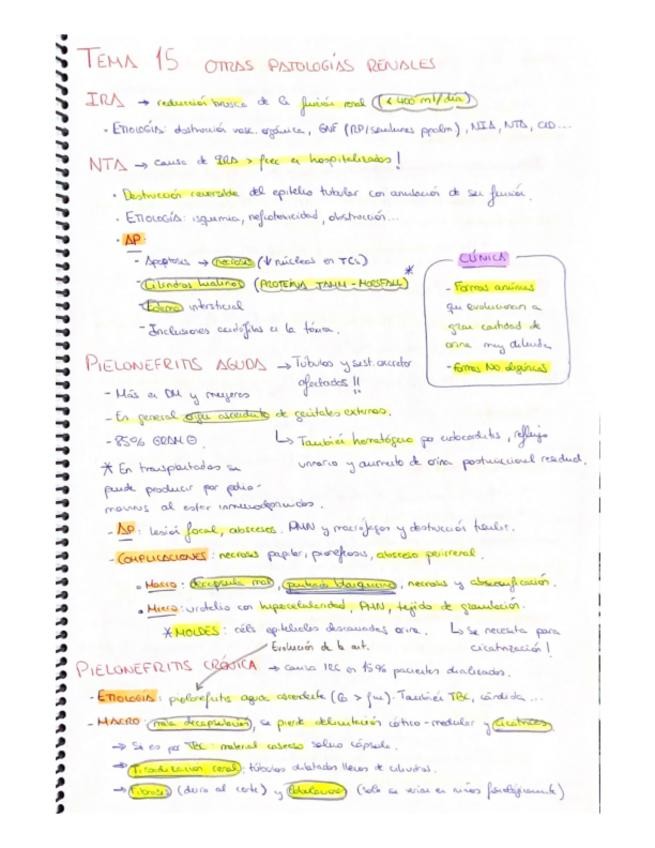 TEMA 15 OTRAS PATOLOGÍAS RENALES
IRA → reducción brusca de la función renal (< 400 ml/día)
· ETIOLOGÍA: destrucción vasc. orgánica, GNF (RP/semilunas ppalm), NIA, NTA, CID...
NTA → causa de IRA > frec en hospitalizados!
· Destrucción reversible del epitelio tubular con anulación de su función.
· ETIOLOGÍA: isquemia, nefrotoxicidad, obstrucción...
· AP:
- Apoptosis → necrosis (↓ núcleos en TCs)
- Cilindros hialinos (PROTEÍNA TAMM-HORSFALL) *
- Edema intersticial
- Inclusiones acidófilas en la
CLÍNICA
- Formas anúricas
que evolucionan a
gran cantidad de
orina muy diluida
- Formas No oligúricas
PIELONEFRITIS AGUDA → Túbulos y sist. excretor
afectados!!
- Más en DM y mujeres
- En general origen ascendente de genitales externos.
- 85% GRAM ⊖
↳ También hematógeno por endocarditis, reflujo
urinario y aumento de orina postmiccional residual.
* En transplantados se
puede producir por polio-
mavirus al estar inmunodeprimidos.
- AP: lesión focal, abscesos. PMN y macrófagos y destrucción tisular.
- COMPLICACIONES: necrosis papilar, pionefrosis, absceso perirrenal.
· Macro: decapsula mal, punteado blanquecino, necrosis y abscesificación.
· Micro: urotelio con hipercelularidad, PMN, tejido de granulación.
* MOLDES: céls epiteliales descamadas orina. ↳ Se necesita para
cicatrización!
Evolución de la ant.
PIELONEFRITIS CRÓNICA → causa IRC en 15% pacientes dializados.
- ETIOLOGÍA: pielonefritis aguda ascendente (> frec). También TBC, cándida...
- MACRO: mala decapsulación, se pierde delimitación córtico-medular y cicatrices
→ Si es por TBC: material caseoso cápsula.
→ Tiroidización renal: túbulos dilatados llenos de cilindros.
→ Fibrosis (duro al corte) y lobulaciones (solo se verían en niños fisiológicamente)